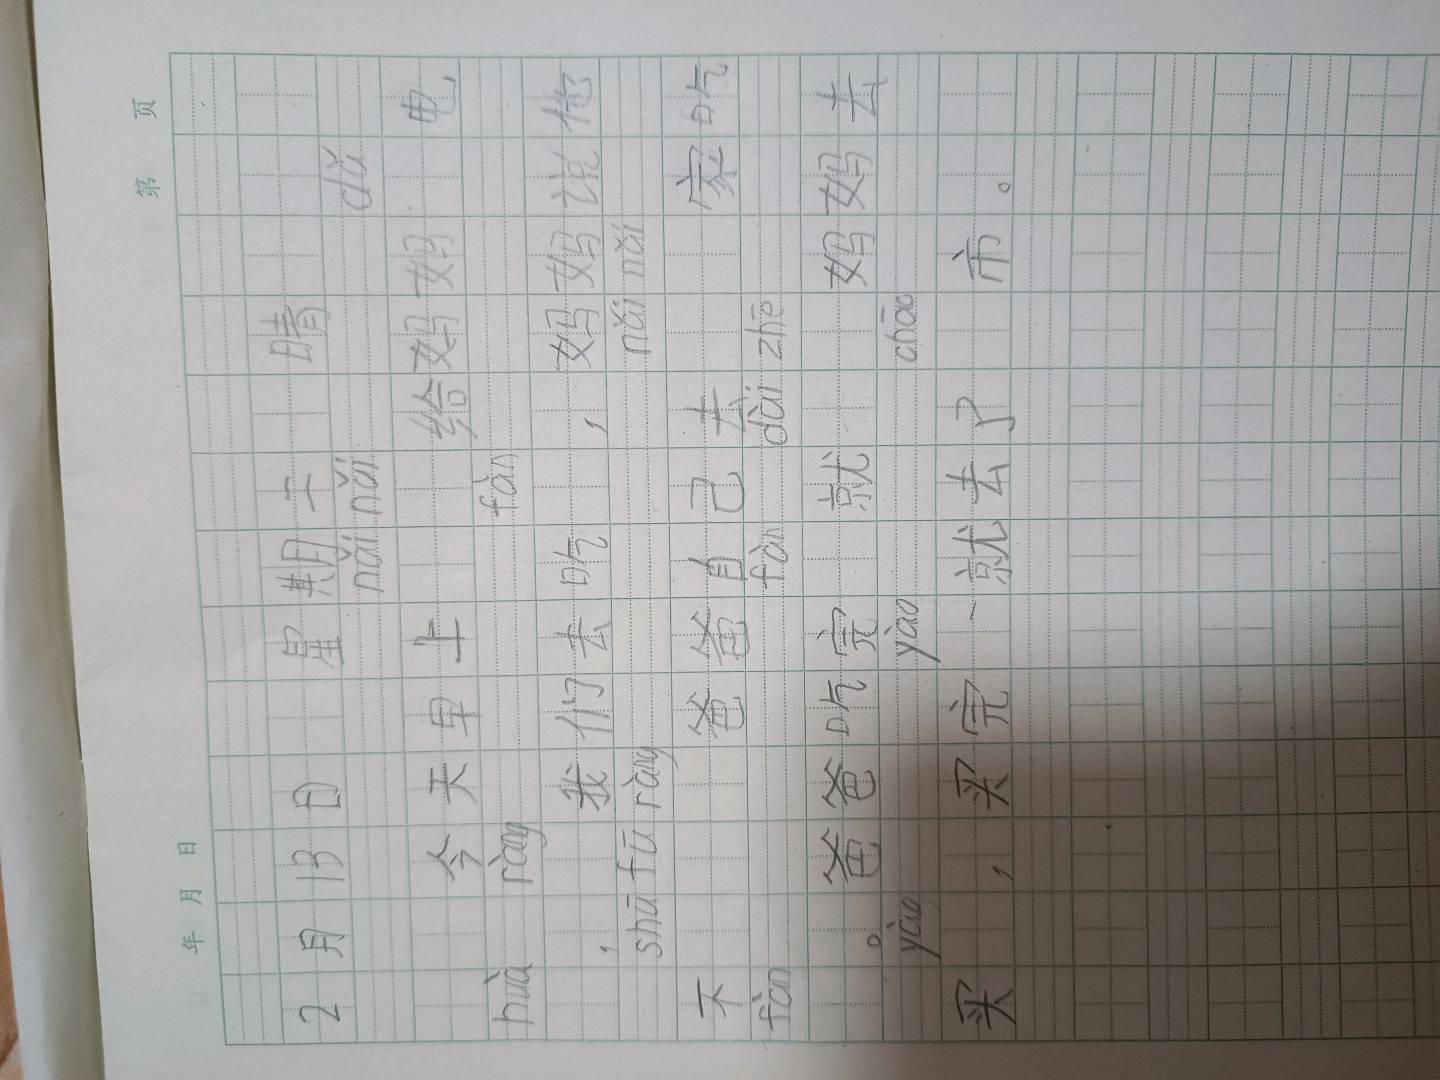 年 月 日 第 页
2月13日 星期二 晴
nǎi nǎi dǎ
今天早上 给妈妈 电
huà ràng fàn
，我们去吃 ，妈妈说他
shū fū ràng nǎi nǎi
不 爸爸自己去 家吃
fàn fàn dài zhe
。爸爸吃完 就 妈妈去
yào yào chāo
买 ，买完一就去了 市。